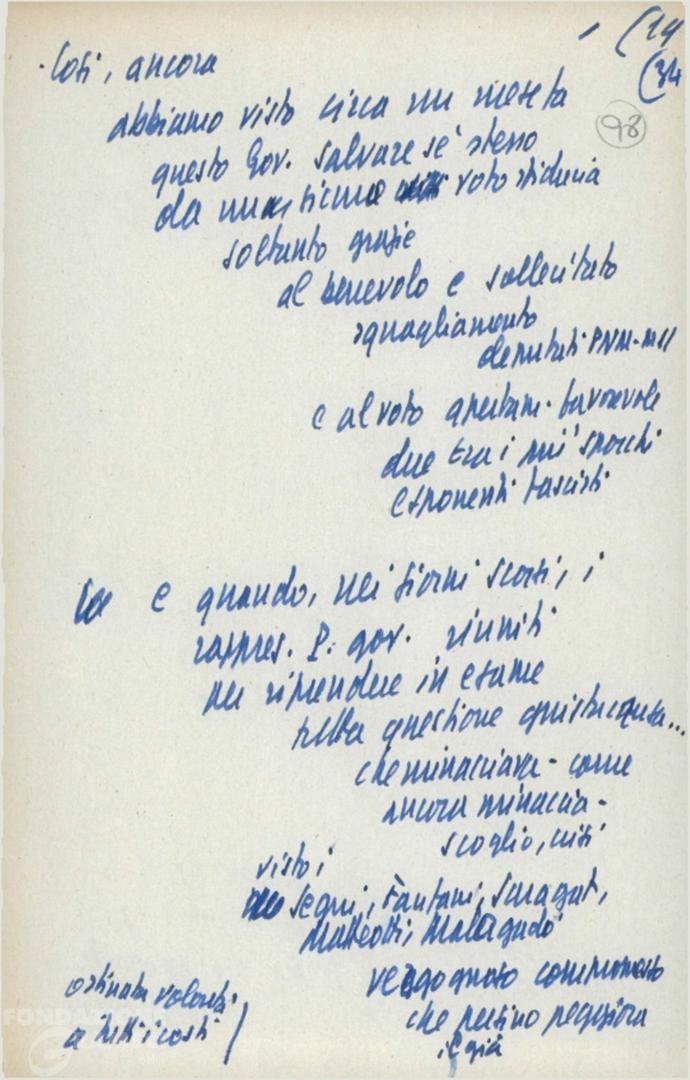 (14
(34
98
· Così, ancora
abbiamo visto circa un mese fa
questo Gov. salvare se' stesso
da voto sfiducia
soltanto grazie
al benevolo e sollecitato
squagliamento
deputati PNM-MSI
e al voto apertam. favorevole
due tra i più sporchi
esponenti fascisti
e quando, nei giorni scorsi, i
rappres. P. gov. riuniti
per riprendere in esame
questione giusta causa...
che minacciava - come
ancora minaccia -
scoglio, crisi
visto i
Segni, Fanfani, Saragat,
Matteotti, Malagodi
vergognoso compromesso
che persino peggiora
il già
ostinata volontà
a tutti i costi
FONDAZIONE